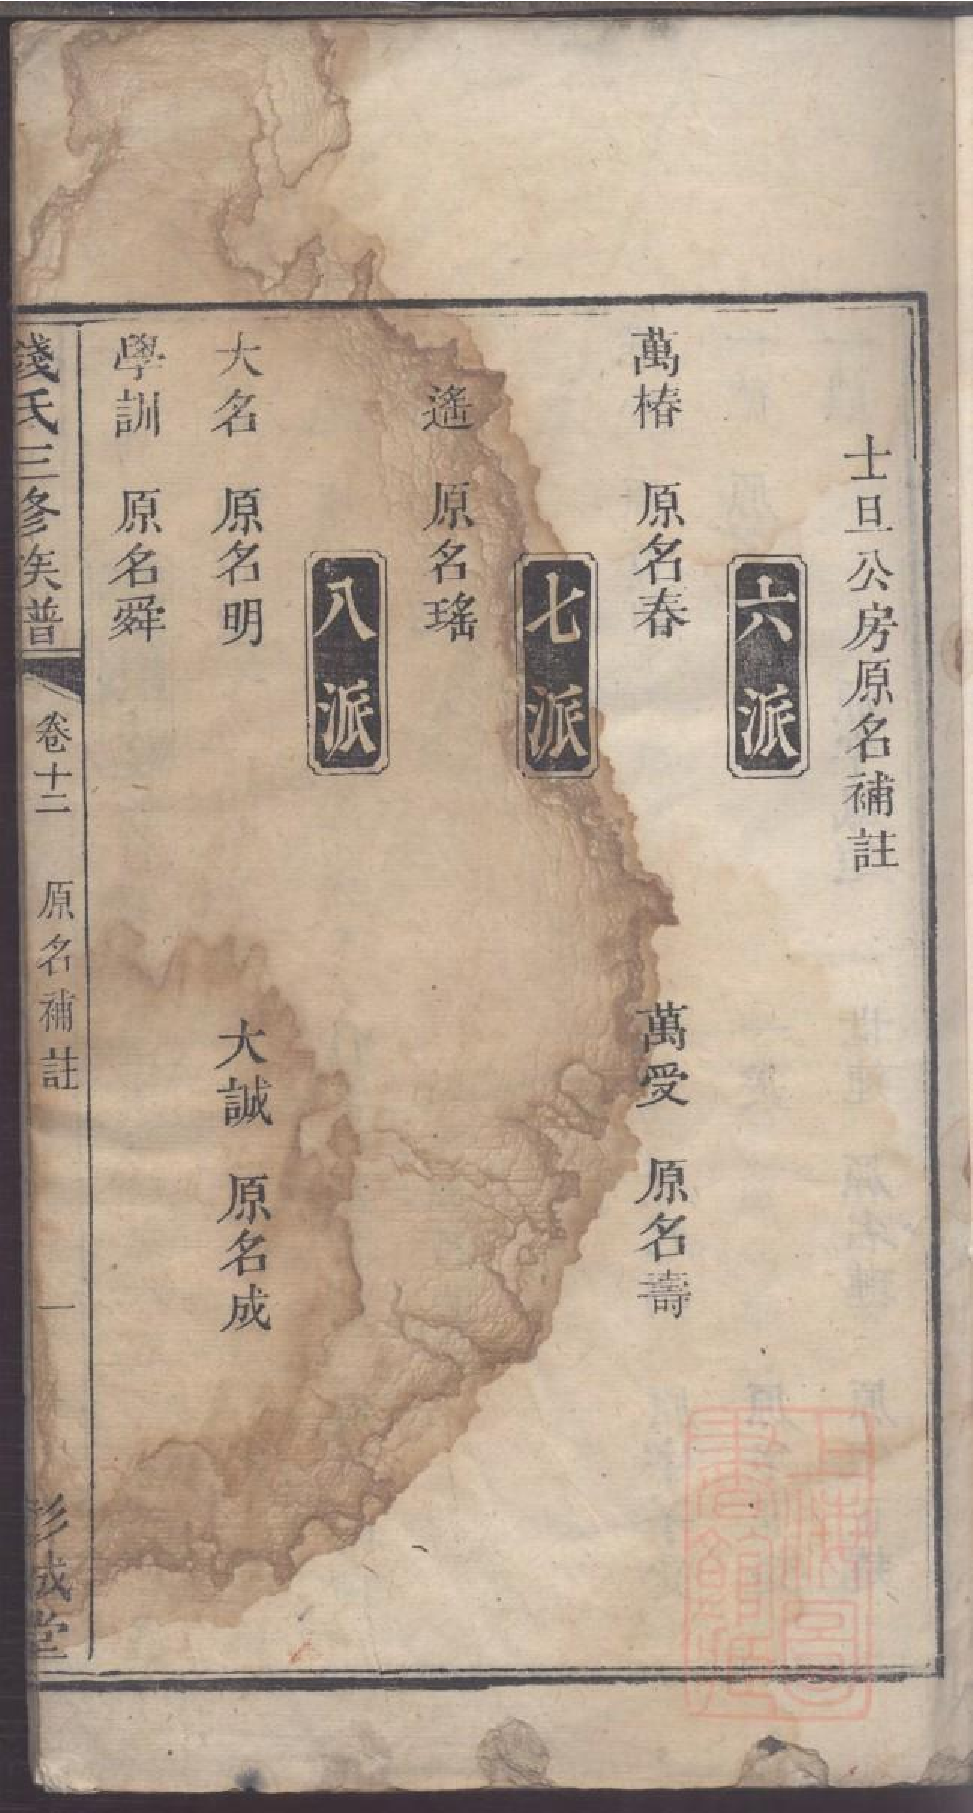 士旦公房原名補註
六派
萬椿 原名春 萬受 原名壽
七派
遙 原名瑤
八派
大名 原名明 大誠 原名成
學訓 原名舜
錢氏三修族譜 卷十二 原名補註 一 彭城堂
上海圖書館藏